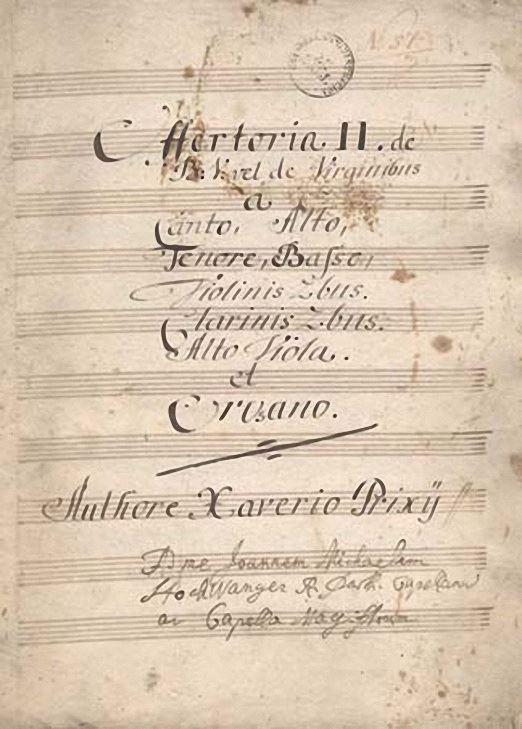 N. 51
Offertoria II. de
B: V. vel de Virginibus
a
Canto, Alto,
Tenore, Basso,
Violinis 2bus.
Clarinis 2bus.
Alto Viola.
et
Organo.
Authore Xaverio Prixÿ
Joannem Michaelem
Capella